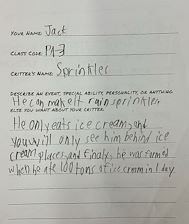 YOUR NAME: Jack
CLASS CODE: PA-3
CRITTER'S NAME: Sprinkler
DESCRIBE AN EVENT, SPECIAL ABILITY, PERSONALITY, OR ANYTHING
He can make it rain sprinkler
ELSE YOU WANT ABOUT YOUR CRITTER.
He only eats ice creams and
you will only see him behind ice
cream places and finaly he was formed
when he ate 100 tons of ice crem in 1 day.